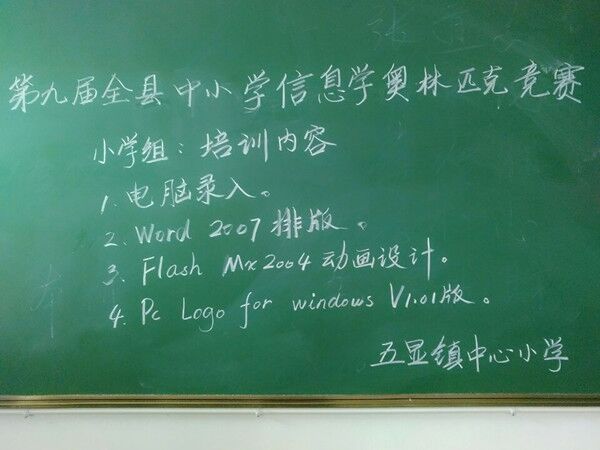 第九届全县中小学信息学奥林匹克竞赛
小学组：培训内容
1. 电脑录入。
2. Word 2007 排版。
3. Flash Mx2004 动画设计。
4. Pc Logo for windows V1.01版。
五显镇中心小学